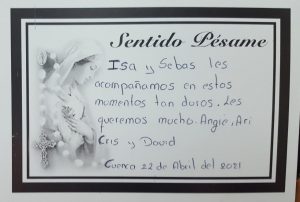 Sentido Pésame
Isa y Sebas les
acompañamos en estos
momentos tan duros. Les
queremos mucho. Angie, Ari
Cris y David
Cuenca 22 de Abril del 2021